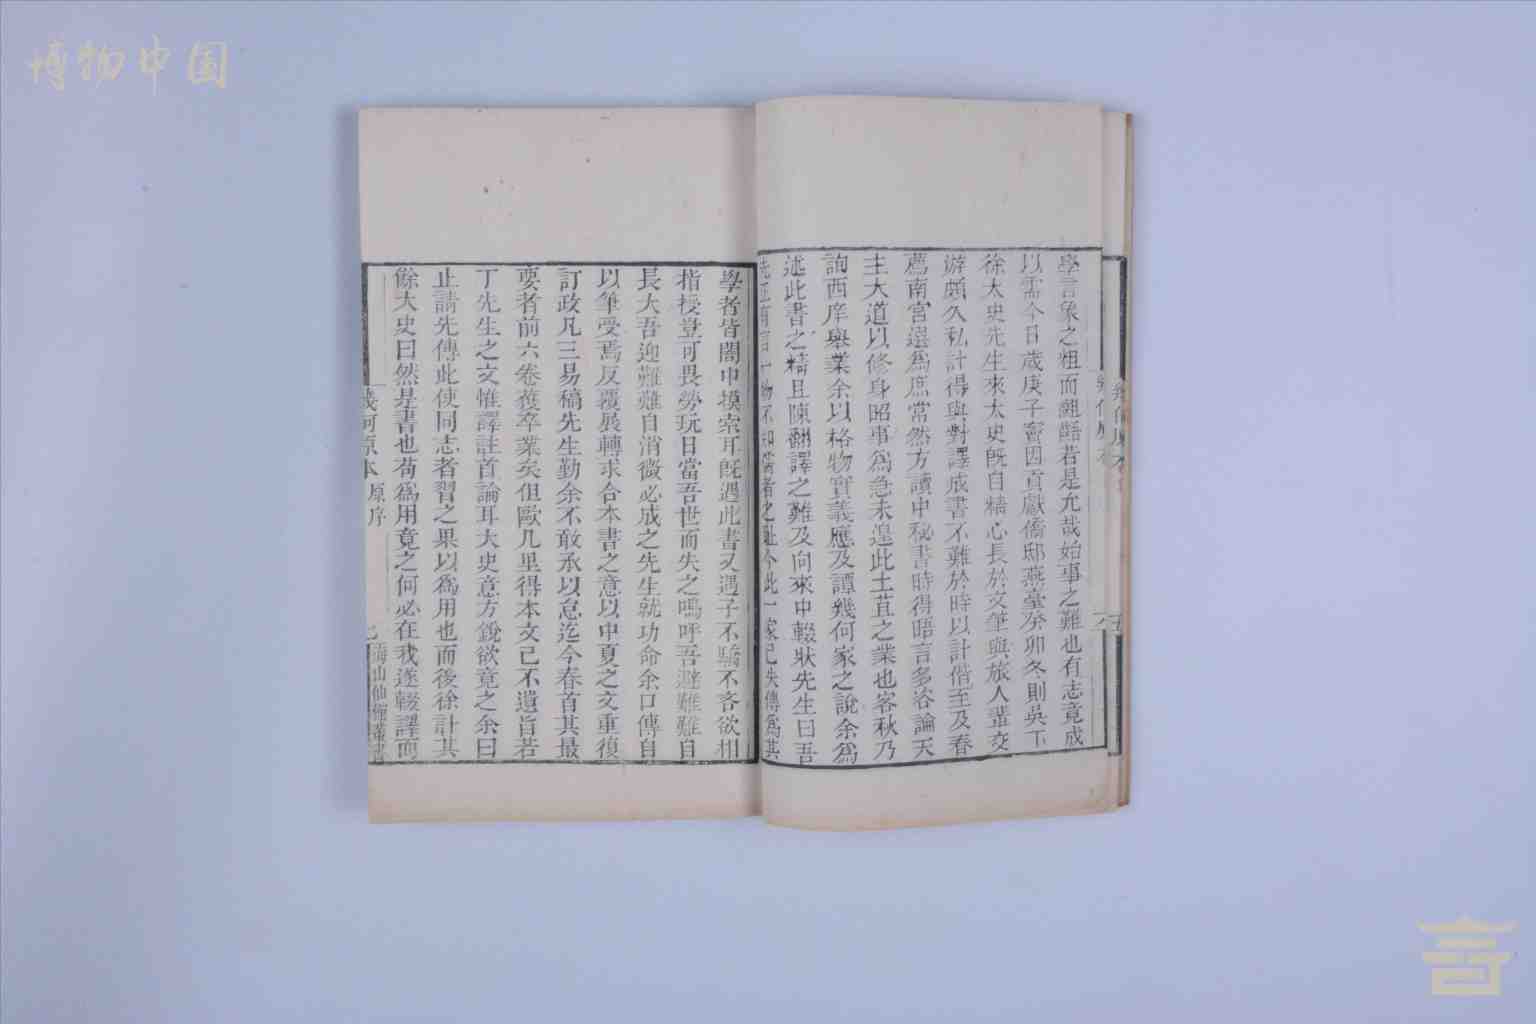 博物中国
學言象之粗而齟齬若是允哉始事之難也有志竟成
以需今日歲庚子竇因貢獻僑邸燕臺癸卯冬則吳下
徐太史先生來太史既自精心長於文筆與旅人輩交
游頗久私計得與對譯成書不難於時以計偕至及春
薦南宮選為庶常然方讀中秘書時得晤言多咨論天
主大道以修身昭事為急未遑此土苴之業也客秋乃
詢西庠舉業余以格物實義應及譚幾何家之說余為
述此書之精且陳翻譯之難及向來中輟狀先生曰吾
先正有言一物不知儒者之恥今此一家已失傳為其
學者皆闇中摸索耳既遇此書又遇子不驕不吝欲相
指授豈可畏勞玩日當吾世而失之嗚呼吾避難難自
長大吾迎難難自消微必成之先生就功命余口傳自
以筆受焉反覆展轉求合本書之意以中夏之文重復
訂政凡三易稿先生勤余不敢承以怠迄今春首其最
要者前六卷獲卒業矣但歐几里得本文已不遺旨若
丁先生之文惟譯註首論耳大史意方銳欲竟之余曰
止請先傳此使同志者習之果以為用也而後徐計其
餘大史曰然是書也苟為用竟之何必在我遂輟譯而
幾何原本 原序 七 海山仙館叢書